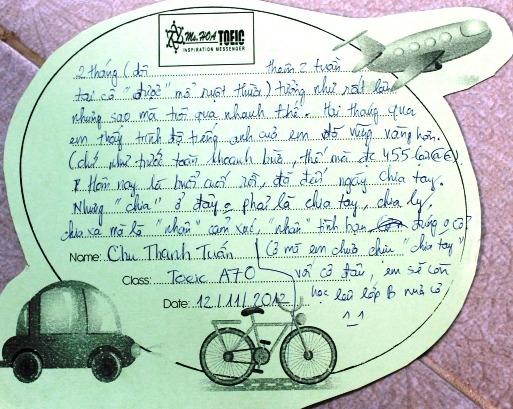 Ms. HOA TOEIC
INSPIRATION MESSENGER
2 tháng (đã thêm 2 tuần
tại cô "được" mổ ruột thừa) tưởng như rất lâu
nhưng sao mà trôi qua nhanh thế. Hai tháng qua
em thấy trình độ tiếng anh của em đã vững vàng hơn.
(chứ như trước toàn khoanh bừa, thế mà đc 455
Hôm nay là buổi cuối rồi, đã đến ngày chia tay.
Nhưng "chia" ở đây o phải là chia tay, chia ly,
chia xa mà là "nhân" cảm xúc, "nhân" tình bạn đúng o cô
Name: Chu Thanh Tuấn (Cô mà em chưa chia "chia tay"
Class: Toeic A70 với cô đâu, em sẽ còn
Date: 12/11/2012 học lớp B nhà cô
^-^